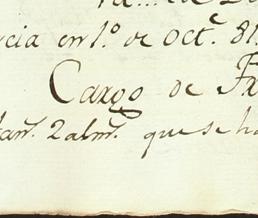 cia en 1º de Octe. 81
Cargo de
2 alms. que se ha